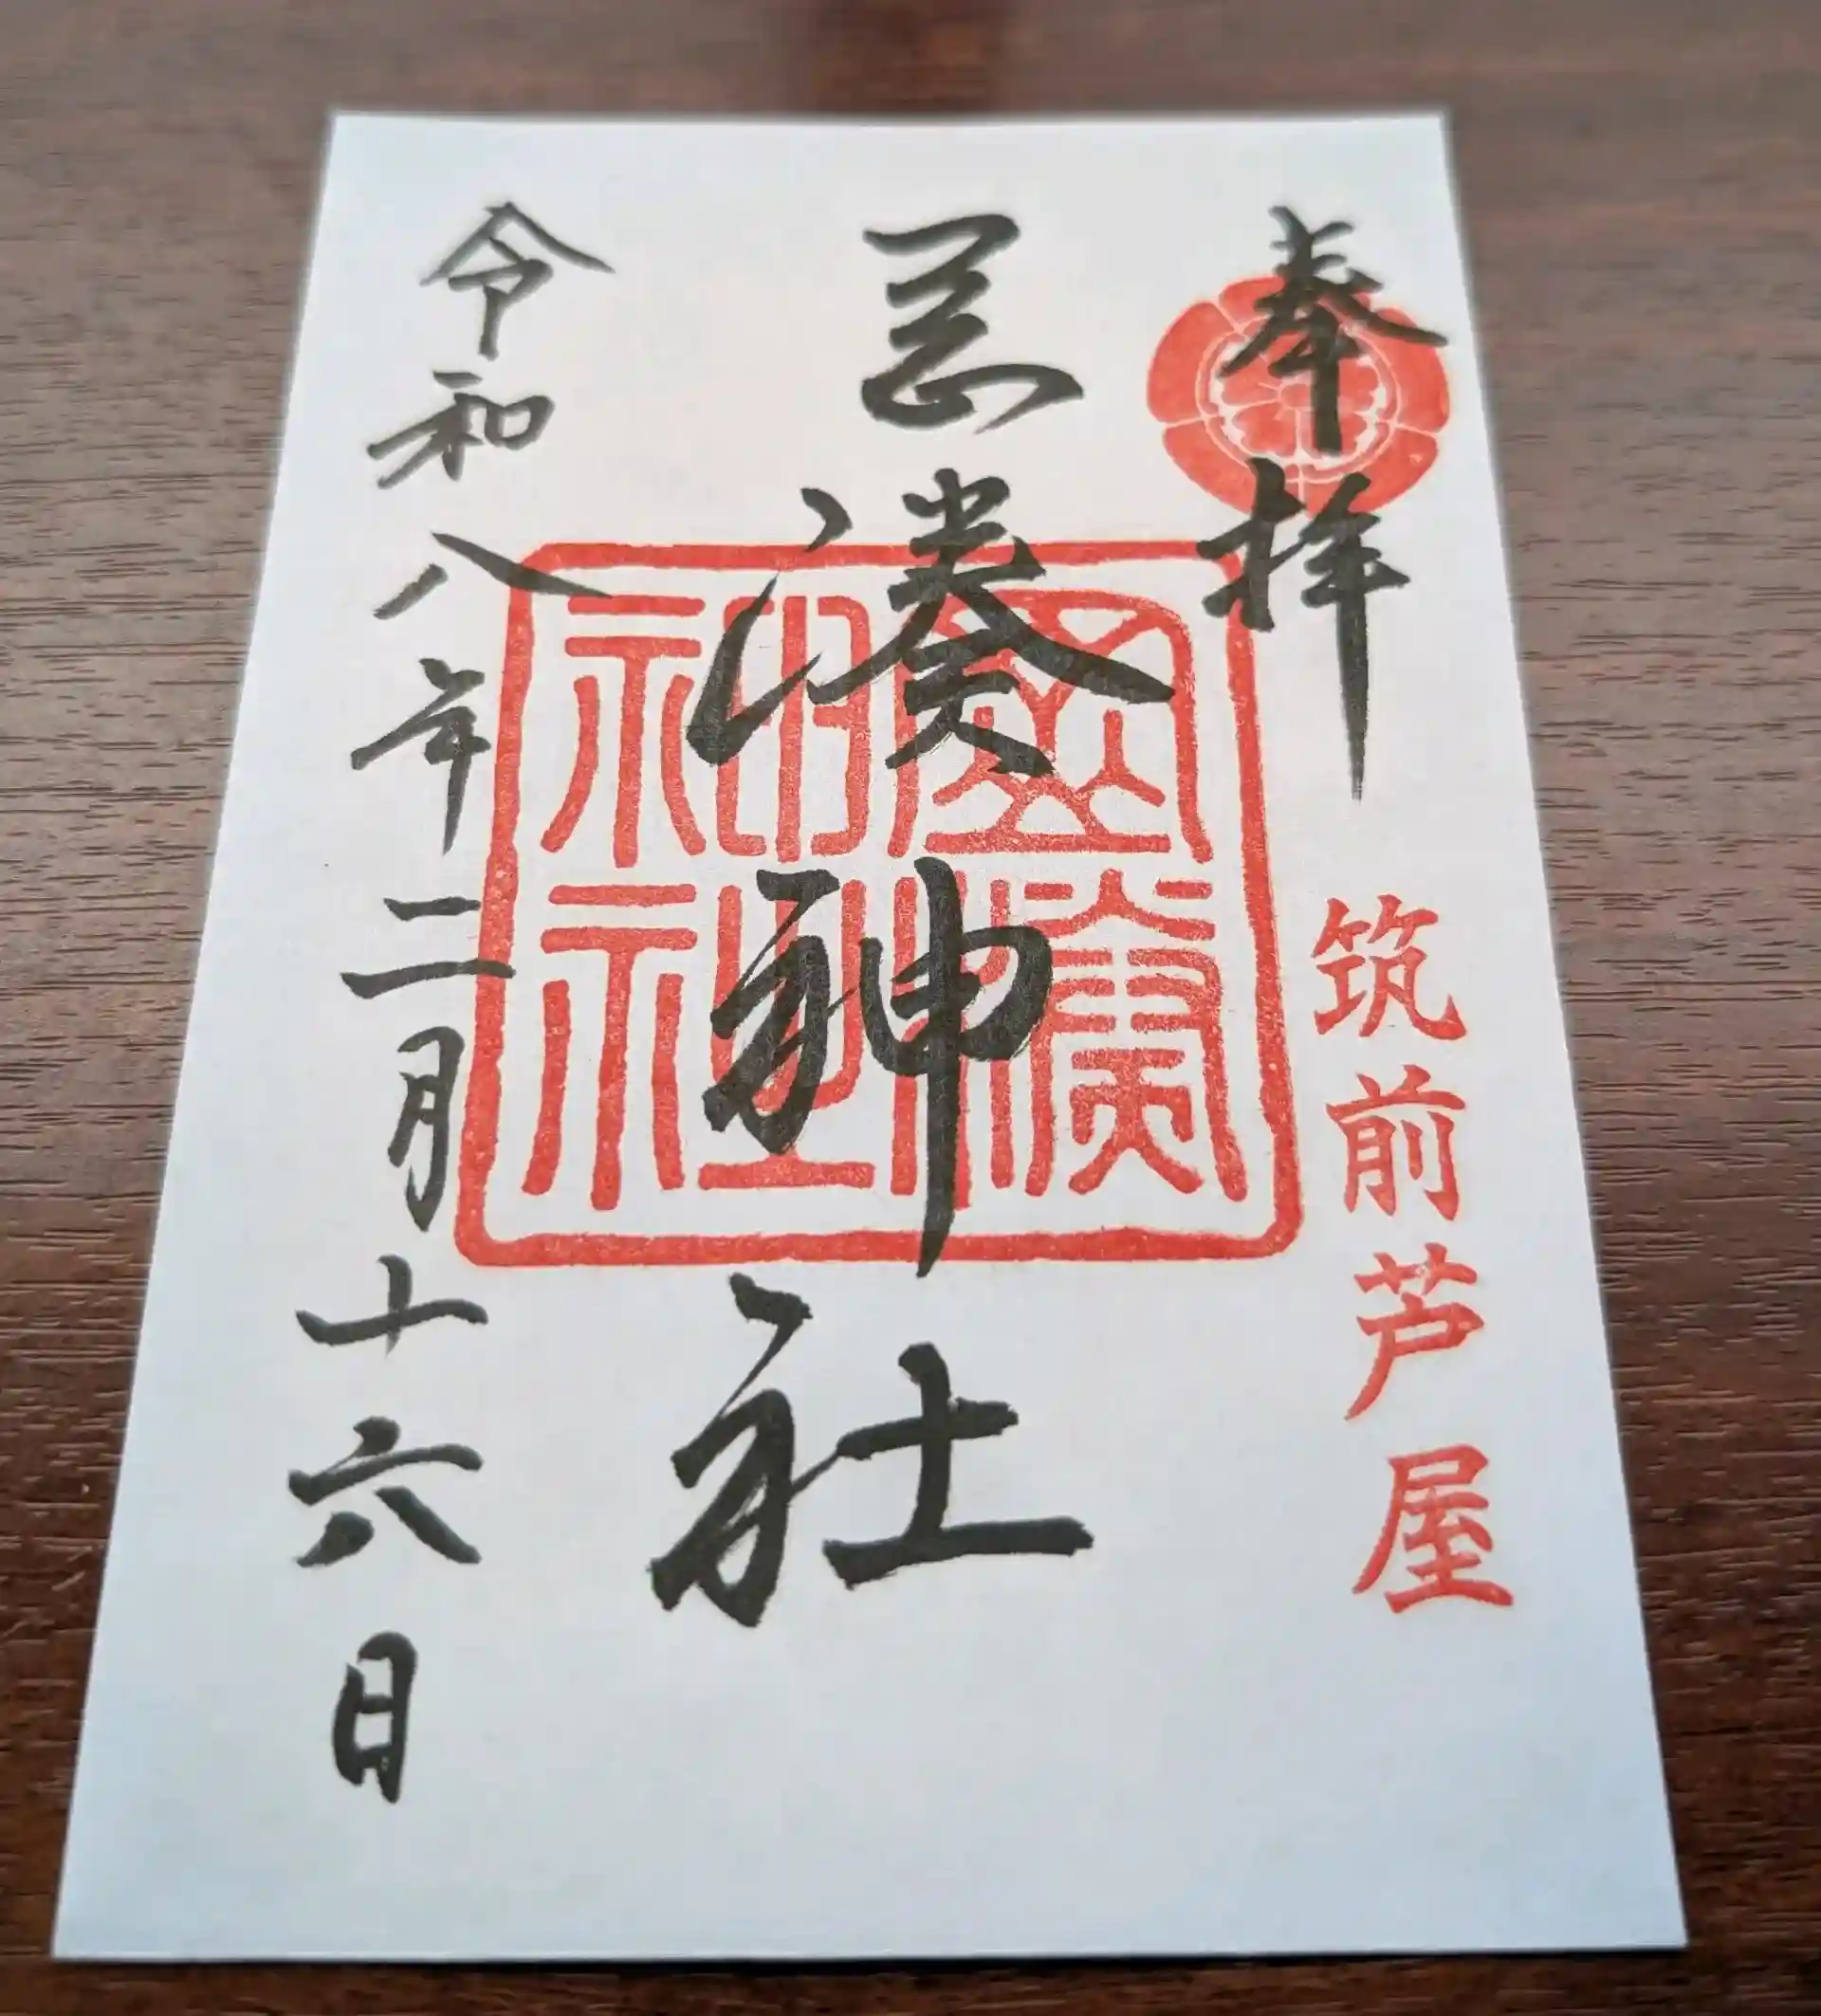 奉拝
筑前芦屋
岡湊神社
岡湊神社
令和八年二月十六日